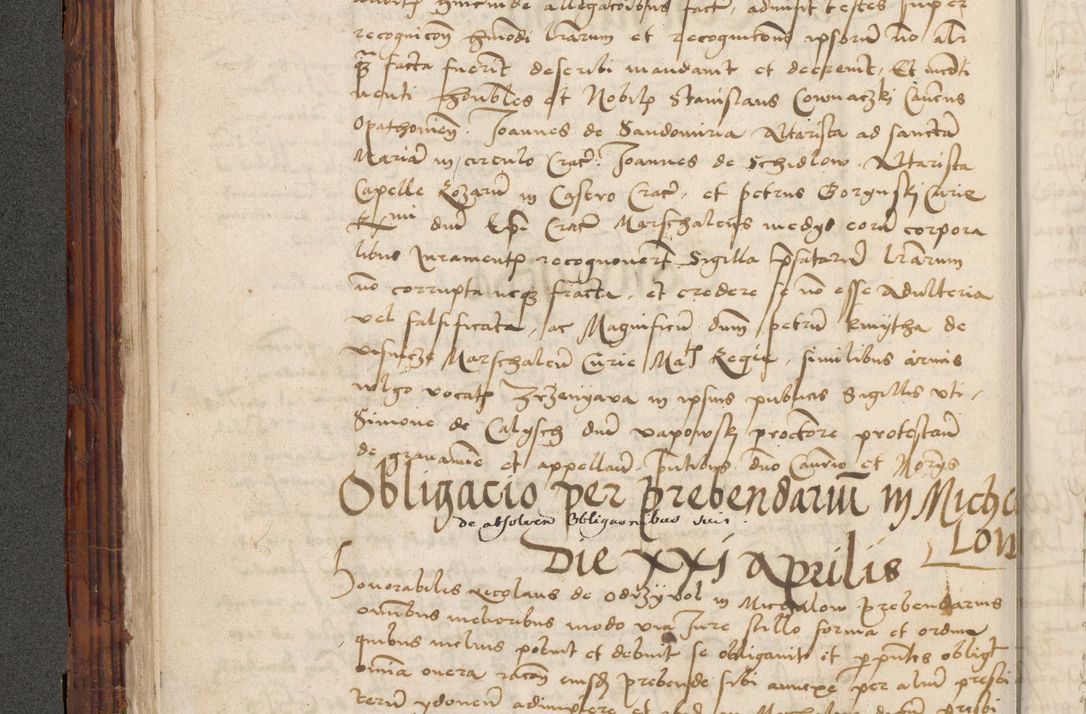 recognicoñ hmodi lrarum et recogniconē ipsorū no alr
facta fuerit describi mandavit et decrevit, Et medti
venti Honbles et Nobilis Stanislaus Cownaczki Cancus
Opathovień. Joannes de Sandomiria Altarista ad sanctā
Mariā in circulo Crac. Joannes de Schidlow Altarista
Capelle Rozarū in Castro Crac, et petrus Gorguski Curie
Rmi dni Epi Crac Marschalcus medys eorū corpora
libus Juramentis recognoverūt Sigilla psatarū lrarum
no corrupta neqz fracta, et credere se no esse adulteria
vel falsificata, ac Magnificū dnm petrū kmytha de
visnicze Marschalcū Curie Mats Regie, similibus armis
vulgo vocatis Zrzenyava in ipsius publicis Sigillis uti,
Simone de Calysch dni vapowski proctore protestañ
de gravamie et appellañ, pntibus dno Canrio et Norys
Obligacio per prebendarium in Micha
Low
de absolven Obligaonibus suis
Die XXI Aprilis
Honorabilis Nicolaus de Odrzywol in Michalow prebendarius
omnibus melioribus modo via Jure stillo forma et ordine
quibus melius potuit et debuit se obligavit et p pntes obligt
omnia onera racone eiusd prebende sibi annexe per aliū presbi
terū ydoneū adimplere et